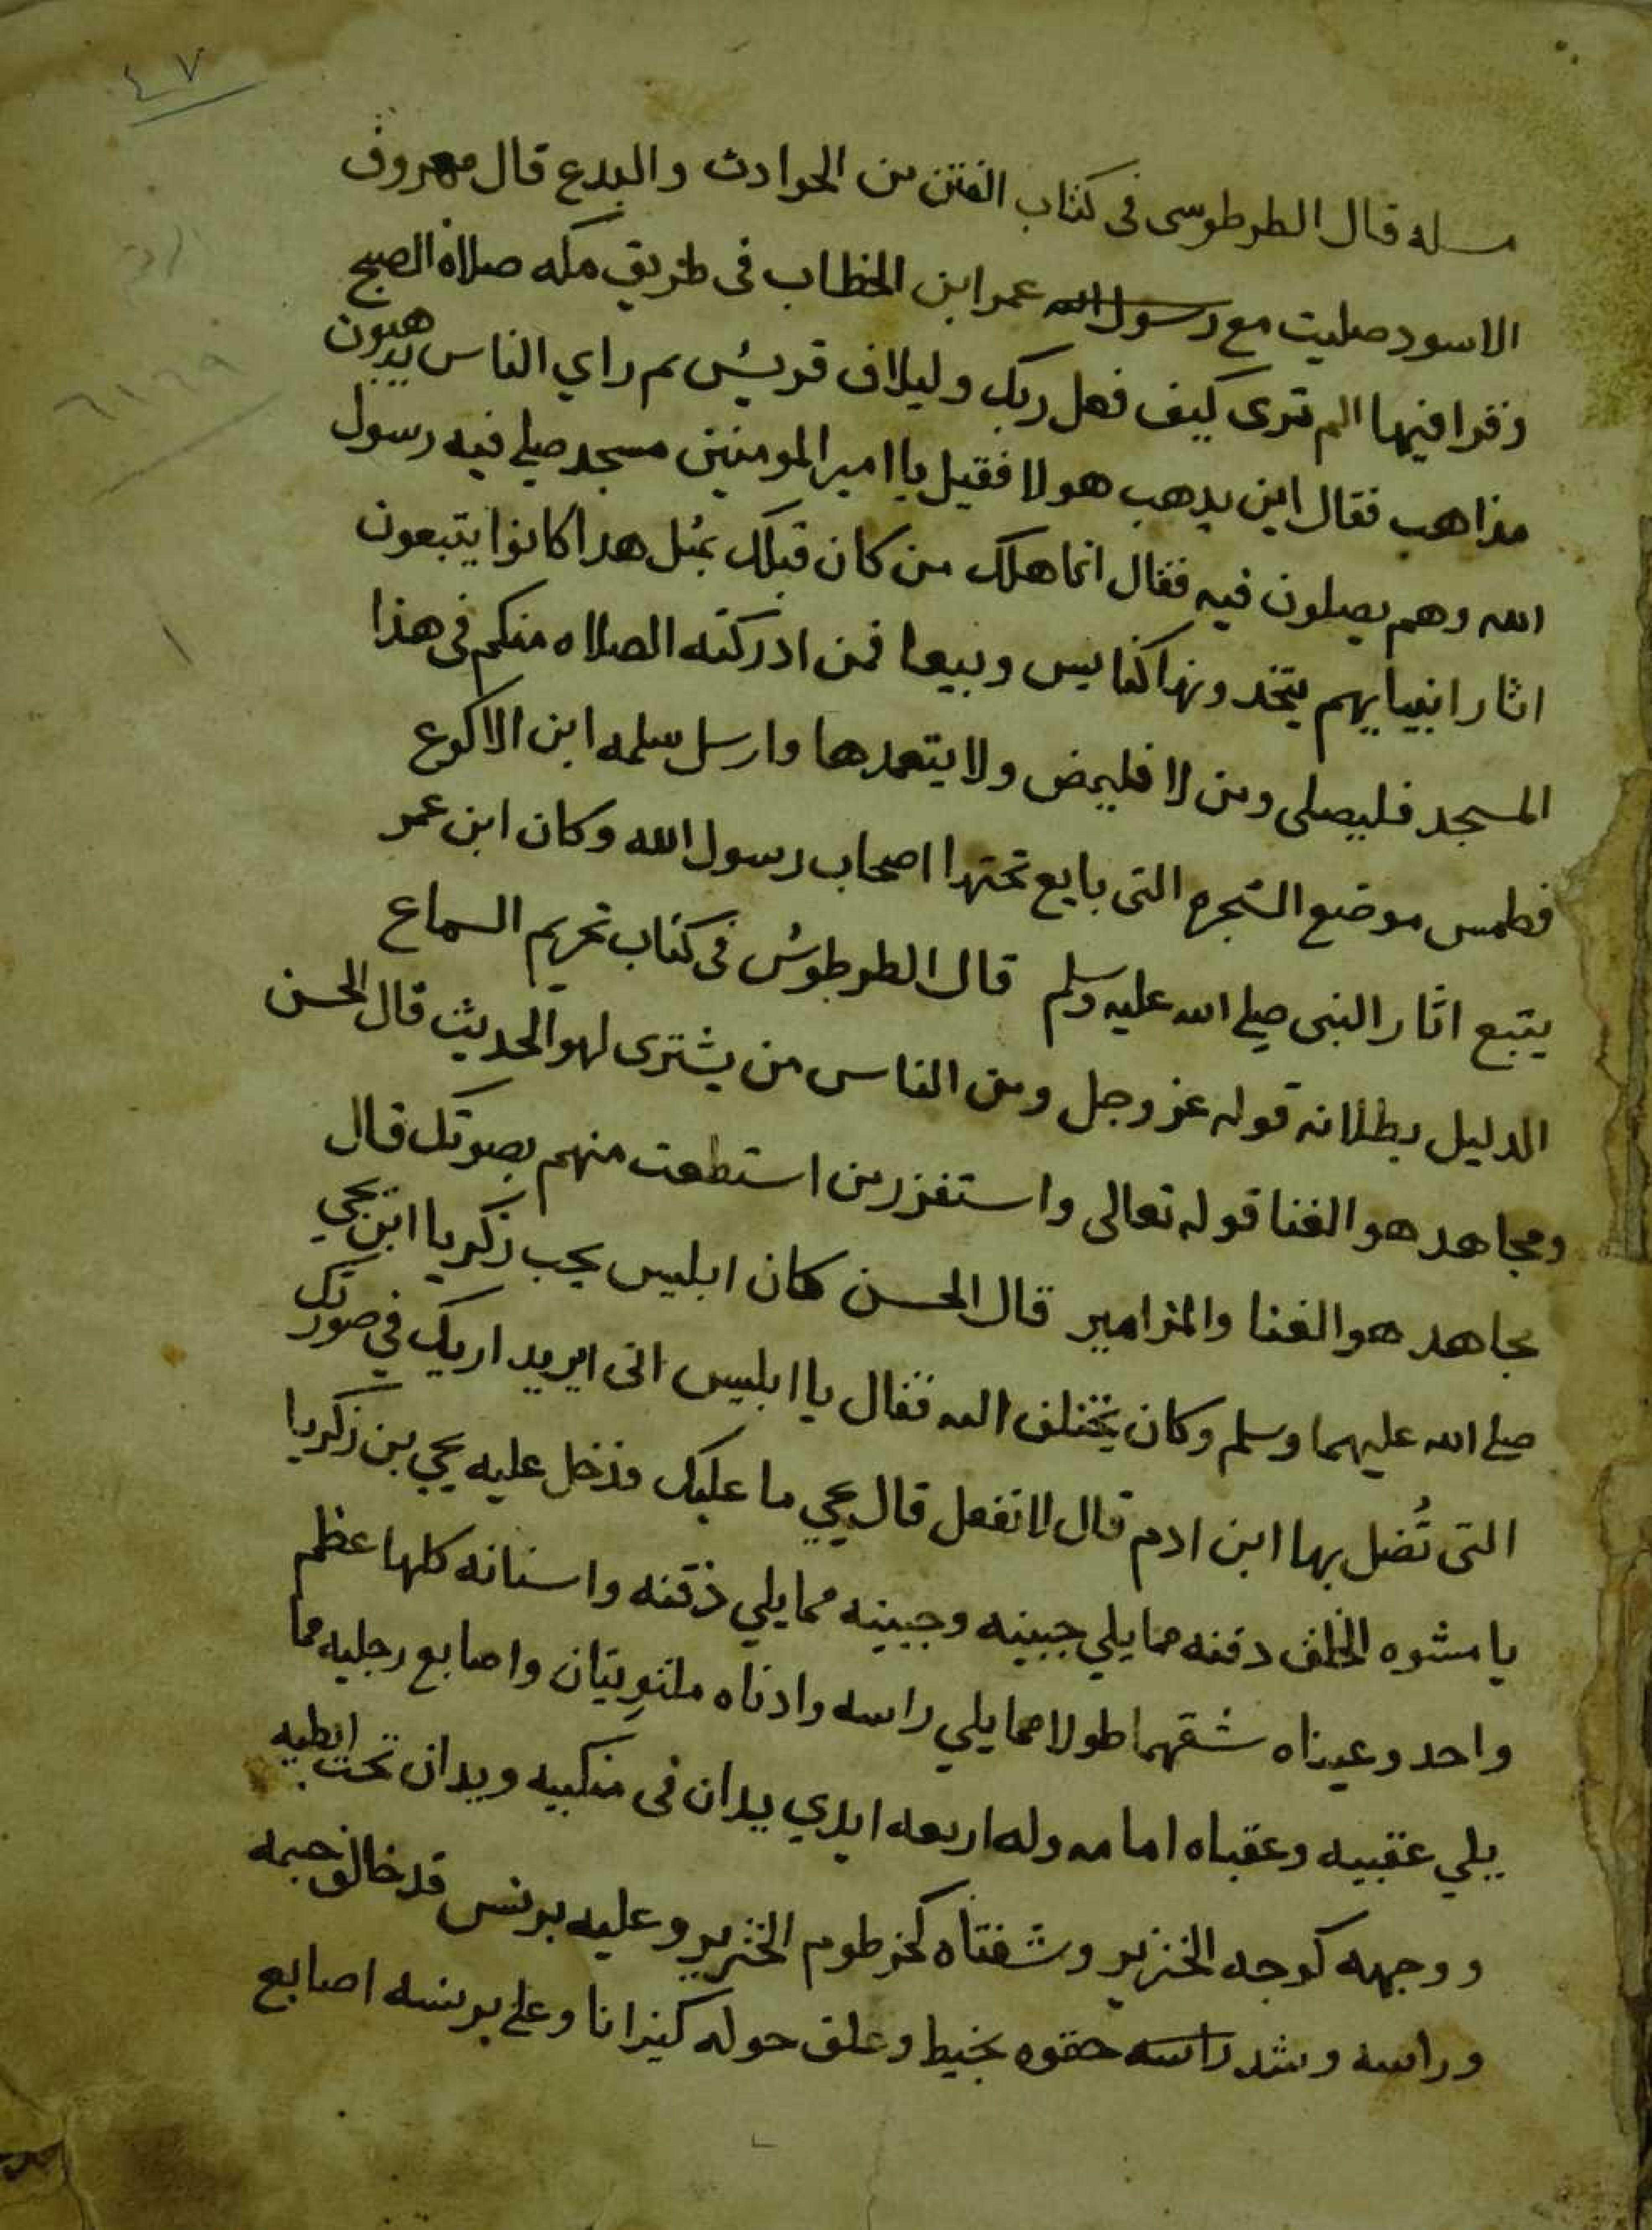 ٤٧
مسله قال الطرطوسى فى كتاب الفتن من الحوادث والبدع قال معروف
الاسود صليت مع رسول الله عمر ابن الخطاب فى طريق مكه صلاة الصبح
وقرا فيها الم ترى كيف فعل ربك وليلاف قريش ثم راي الناس يدهبون
مذاهب فقال اين يدهب هولا فقيل يا امير المومنين مسجد صلى فيه رسول
الله وهم يصلون فيه فقال انما هلك من كان قبلك بمثل هدا كانوا يتبعون
اثار انبيايهم يتخدونها كنايس وبيعا فمن ادركته الصلاه منكم فى هذا
المسجد فليصلى ومن لا فليمض ولا يتعمدها وارسل سلمه ابن الاكوع
فطمس موضع الشجره التى بايع تحتها اصحاب رسول الله وكان ابن عمر
يتبع اثار النبى صلى الله عليه وسلم قال الطرطوش فى كتاب تحريم السماع
الدليل بطلانه قوله عز وجل ومن الناس من يشترى لهو الحديث قال الحسن
ومجاهد هو الغنا قوله تعالى واستفزز من استطعت منهم بصوتك قال
مجاهد هو الغنا والمزامير قال الحسن كان ابليس يحب زكريا ابن يحي
صلى الله عليهما وسلم وكان يختلف اليه فقال يا ابليس انى اريد اريك في صورتك
التى تُضل بها ابن ادم قال لا تفعل قال يحي ما عليك فدخل عليه يحي بن زكريا
يا مشوه الخلق دقنه مما يلي جبينه وجبينه مما يلي ذقنه واسنانه كلها عظم
واحد وعيناه شقهما طولا مما يلي راسه واذناه ملتويتان واصابع رجليه مما
يلي عقبيه وعقباه امامه وله اربعه ايدي يدان فى منكبيه ويدان تحت ابطيه
ووجهه كوجه الخنزير وشفتاه كخرطوم الخنزير وعليه برنس قد خالف جسمه
وراسه وشد راسه حقوه بخيط وعلق حوله كيزانا وعلى برنسه اصابع